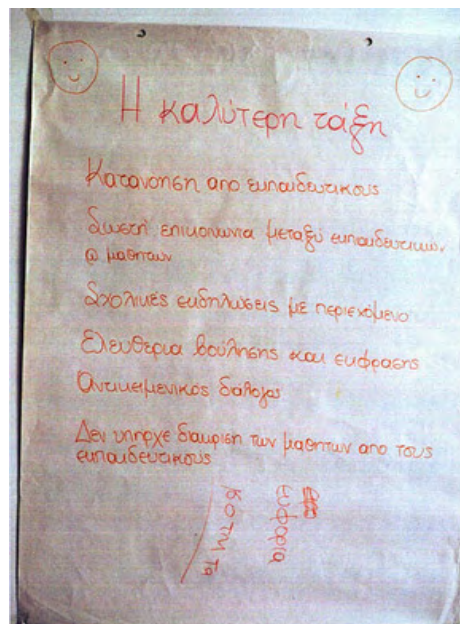 Η καλύτερη τάξη
Κατανοηση απο εκπαιδευτικους
Σωστη επικοινωνια μεταξυ εκπαιδευτικων
@ μαθητων
Σχολικες εκδηλωσεις με περιεχομενο
Ελευθερια βουλησης και εκφρασης
Αντικειμενικος διαλογος
Δεν υπηρχε διακριση των μαθητων απο τους
εκπαιδευτικους